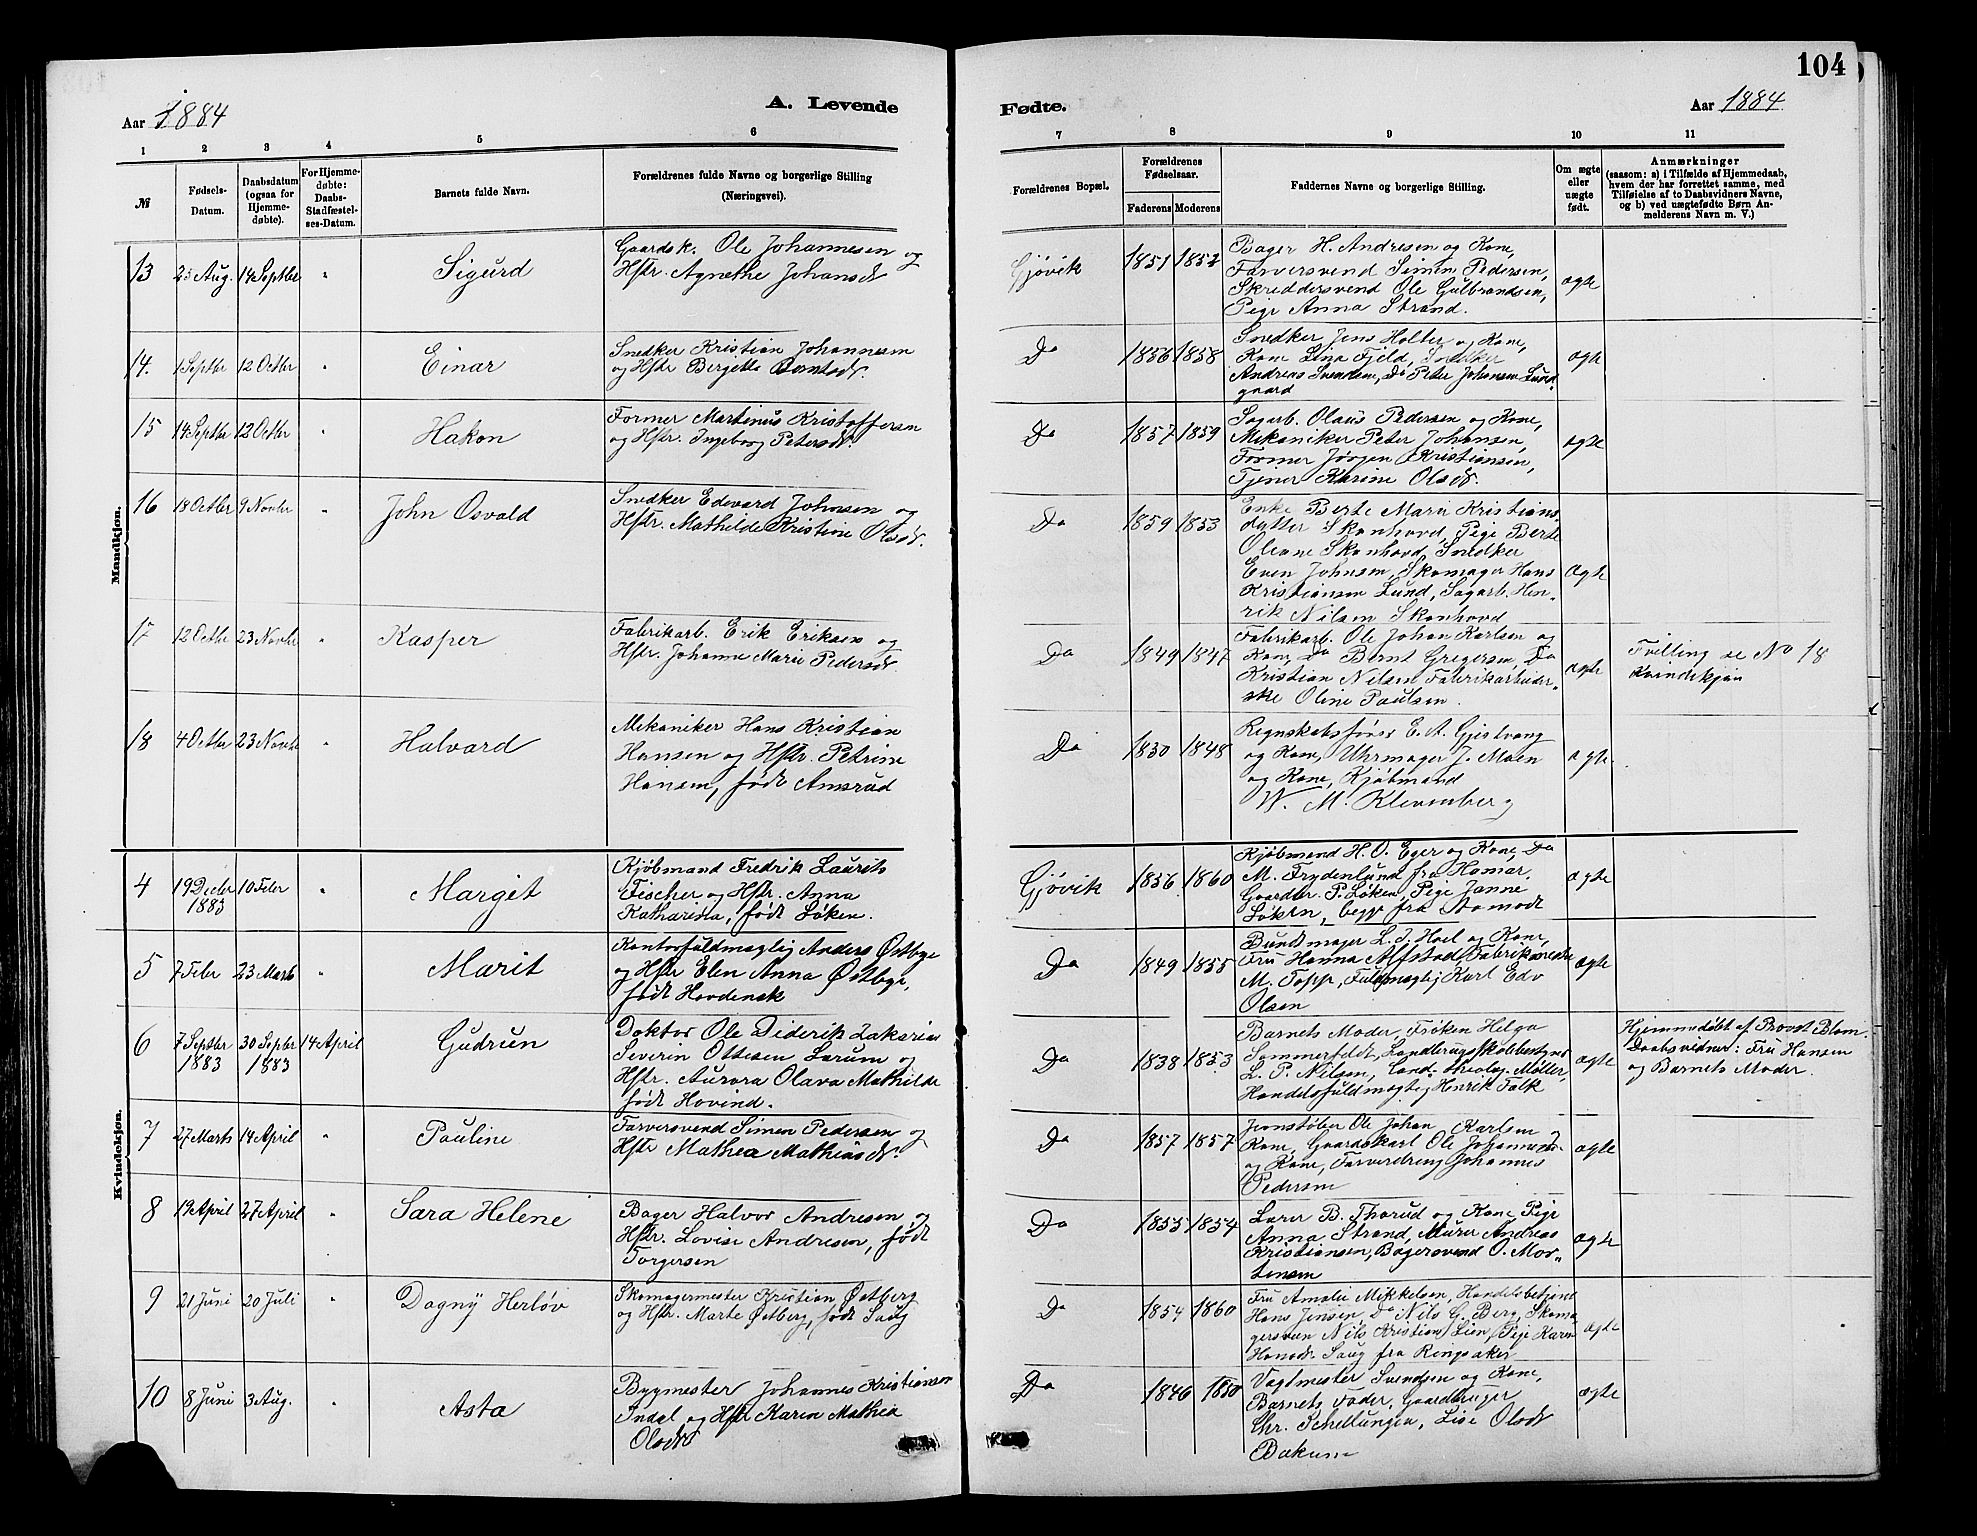 104
Aar 1884
A. Levende
Fødte.
Aar 1884
1 2 3 4 5 6 7 8 9 10 11
№
Fødsels-
Datum.
Daabsdatum
(ogsaa for
Hjemme-
døbte).
For Hjemme-
døbte:
Daabs-
Stadfæstel-
ses-Datum.
Barnets fulde Navn.
Forældrenes fulde Navne og borgerlige Stilling
(Næringsvei).
Forældrenes Bopæl.
Forældrenes
Fødselsaar.
Faderens Moderens
Faddernes Navne og borgerlige Stilling.
Om ægte
eller
uægte
født.
Anmærkninger
(saasom: a) i Tilfælde af Hjemmedaab,
hvem der har forrettet samme, med
Tilføielse af to Daabsvidners Navne,
og b) ved uægtefødte Børn An-
melderens Navn m. V.)
Mandkjøn.
13 25 Aug. 14 Septbr " Sigurd
Gaardsk. Ole Johannesen og
Hstr. Agnethe Johansdr
Gjøvik 1851 1852
Bager H. Andresen og Kone,
Farversvend Simen Pedersen,
Skreddersvend Ole Gulbrandsen,
Pige Anna Strand.
ægte
14. 1 Septbr 12 Octbr " Einar
Snedker Kristian Johannesen
og Hstr Bergette
Do 1856 1858
Snedker Jens Holter og Kone,
Kone Lina Fjeld, Snedker
Andreas Svendsen, Do Peter Johansen Lund-
gaard
ægte
15 14 Septbr 12 Octbr " Hakon
Former Martinus Kristoffersen
og Hstr. Ingeborg Petersdr.
Do 1857 1859
Sagarb. Olaus Pedersen og Kone,
Mekaniker Peter Johansen,
Former Jørgen Kristiansen,
Tjener Karine Olsdr.
ægte
16 18 Octbr 9 Novbr " John Osvald
Snedker Edevard Johnsen og
Hstr. Mathilde Kristine Olsdr.
Do 1859 1853
Enke Berte Marie Kristians-
datter Skonhovd, Pige Berte
Oleane Skonhovd, Snedker
Even Johnsen, Skomager Hans
Kristiansen Lund, Sagarb. Hen-
rik Nilsen Skonhovd
ægte
17 12 Octbr 23 Novbr " Kasper
Fabrikarb. Erik Eriksen og
Hstr. Johanne Marie Pedersdr
Do 1849 1847
Fabrikarb. Ole Johan Karlsen og
Kone, Do Bernt Gregersen, Do
Kristian Nilsen Fabrikarbeider-
ske Oline Paulsen.
ægte
Tvilling se No 18
Kvindekjøn
18 4 Octbr 23 Novbr " Halvard
Mekaniker Hans Kristian
Hansen og Hstr. Petrine
Hansen, født Amsrud
Do 1830 1848
Regnskabsfører E. A. Gjestvang
og Kone, Uhrmager J. Moen
og Kone, Kjøbmand
W. M. Klevenberg
ægte.
Kvindekjøn.
4 19 Decbr 10 Febr " Margit
1883
Kjøbmand Fredrik Laurits
Fischer og Hstr. Anna
Katharina, født Løken.
Gjøvik 1856 1860
Kjøbmand H. O. Eger og Kone, Do
M. Frydenlund fra Hamar,
Gaardbr. P. Løken, Pige Janne
Løken, begge fra
ægte
5 7 Febr 23 Marts " Marit
Kontorfuldmægtig Anders Østbye
og Hstr Elen Anna Østbye,
født Hovdenak
Do 1849 1855
Bundtmager L. J. Hoel og Kone,
Fru Hanna Alfstad,
M. Topp, Fuldmægtig Karl Edv
Olsen
ægte
6 7 Septbr 30 Septbr 14 April Gudrun
1883 1883
Doktor Ole Diderik Zakarias
Severin Ottesen Lærum og
Hstr. Aurora Olava Mathilde
født Hovind.
Do 1838 1853
Barnets Moder, Frøken Helga
Sommerfeldt, Landbrugsskolebestyrer
L. P. Nilsen, Cand. theolog. Møller,
Handelsfuldmægtig Henrik Falk
ægte
Hjemmedøbt af Provst Blom.
Daabsvidner: Fru Hansen
og Barnets Moder.
7 27 Marts 14 April " Pauline
Farversvend Simen Pedersen og
Hstr Mathea Mathiasdr.
Do 1857 1857
Jernstøber Ole Johan Karlsen og
Kone, Gaardskarl Ole Johannesen
og Kone, Farverdreng Johannes
Pedersen
ægte
8 19 April 27 April " Sara Helene
Bager Halvor Andresen og
Hstr. Lovise Andresen, født
Torgersen
Do 1855 1854
Lærer B. Thorud og Kone, Pige
Anna Strand, Murer Andreas
Kristiansen, Bagersvend O. Mor-
tensen
ægte
9 21 Juni 20 Juli " Dagny Herløv
Skomagermester Kristian Østberg
og Hstr. Marte Østberg, født Saug
Do 1854 1860
Fru Amalie Mikkelsen, Handelsbetjent
Hans Jensen, Do Nils G. Berg, Skoma-
gersvend Nils Kristian Lien, Pige Karen
Hansdr Saug fra Ringsaker
ægte
10 8 Juni 3 Aug. " Asta
Bygmester Johannes Kristiansen
Indal og Hstr Karen Mathea
Olsdr
Do 1846 1850
Vagtmester Svendsen og Kone,
Barnets Fader, Gaardbruger
Chr. Schellungen, Lise Olsdr
Bakum
ægte